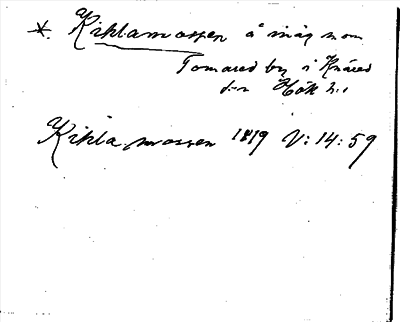 *. Kihlamossen å mäg nom
Tomared by i Knäred
sn Hök h:d
Kihla mossen 1819 V: 14: 59